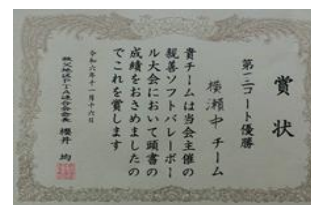 賞状
第二コート優勝
横瀬中チーム
貴チームは当会主催の
親善ソフトバレーボー
ル大会において頭書の
成績をおさめましたの
でこれを賞します
令和六年十一月十六日
秩父地区PTA連合会会長 櫻井 均